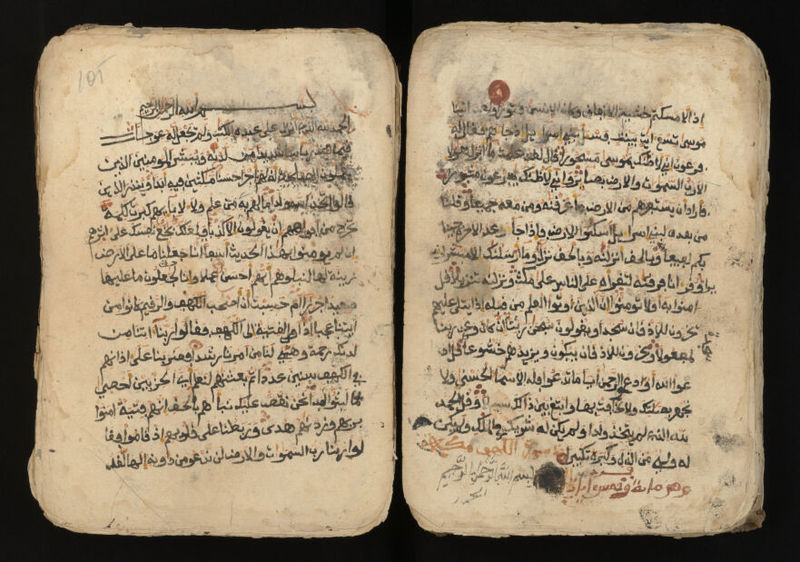 إذا لامسكتم خشية الانفاق وكان الانسن قتورا ولقد اتينا
موسى تسع ايت بينت فسئل بني اسرايل اذ جاهم فقال له
فرعون اني لاظنك يموسى مسحورا قال لقد علمت ما انزل هولا
الا رب السموت والارض بصاير واني لاظنك يفرعون مثبورا
فاراد ان يستفزهم من الارض فاغرقنه ومن معه جميعا وقلنا
من بعده لبني اسرايل اسكنوا الارض فاذا جا وعد الاخرة جينا
بكم لفيفا وبالحق انزلنه وبالحق نزل وما ارسلنك الا مبشرا ونذ
يرا وقرانا فرقنه لتقراه على الناس على مكث ونزلنه تنزيلا قل
امنوا به او لا تومنوا ان الذين اوتوا العلم من قبله اذا يتلى عليهم
يخرون للاذقان سجدا ويقولون سبحن ربنا ان كان وعد ربنا
لمفعولا ويخرون للاذقان يبكون ويزيدهم خشوعا قل اد
عوا الله او ادعوا الرحمن ايا ما تدعوا فله الاسما الحسنى ولا
تجهر بصلتك ولا تخافت بها وابتغ بين ذالك سبيلا وقل الحمد
لله الذي لم يتخذ ولدا ولم يكن له شريك في الملك ولم يكن
له ولي من الذل وكبره تكبيرا سورة الكهف مكية
وهي ماية وخمس ايات
بسم الله الرحمن الرحيم
الحمد
105
بسم الله الرحمن الرحيم
الحمد لله الذي انزل على عبده الكتب ولم يجعل له عوجا
قيما لينذر باسا شديدا من لدنه ويبشر المومنين الذين
يعملون الصلحت ان لهم اجرا حسنا مكثين فيه ابدا وينذر الذين
قالوا اتخذ الله ولدا ما لهم به من علم ولا لابايهم كبرت كلمة
تخرج من افواههم ان يقولون الا كذبا فلعلك بخع نفسك على اثرهم
ان لم يومنوا بهذا الحديث اسفا انا جعلنا ما على الارض
زينة لها لنبلوهم ايهم احسن عملا وانا لجعلون ما عليها
صعيدا جرزا ام حسبت ان اصحب الكهف والرقيم كانوا من
ايتنا عجبا اذ اوى الفتية الى الكهف فقالوا ربنا اتنا من
لدنك رحمة وهيي لنا من امرنا رشدا فضربنا على اذانهم
في الكهف سنين عددا ثم بعثنهم لنعلم اي الحزبين احصى
لما لبثوا امدا نحن نقص عليك نباهم بالحق انهم فتية امنوا
بربهم وزدنهم هدى وربطنا على قلوبهم اذ قاموا فقا
لوا ربنا رب السموت والارض لن ندعوا من دونه الها لقد